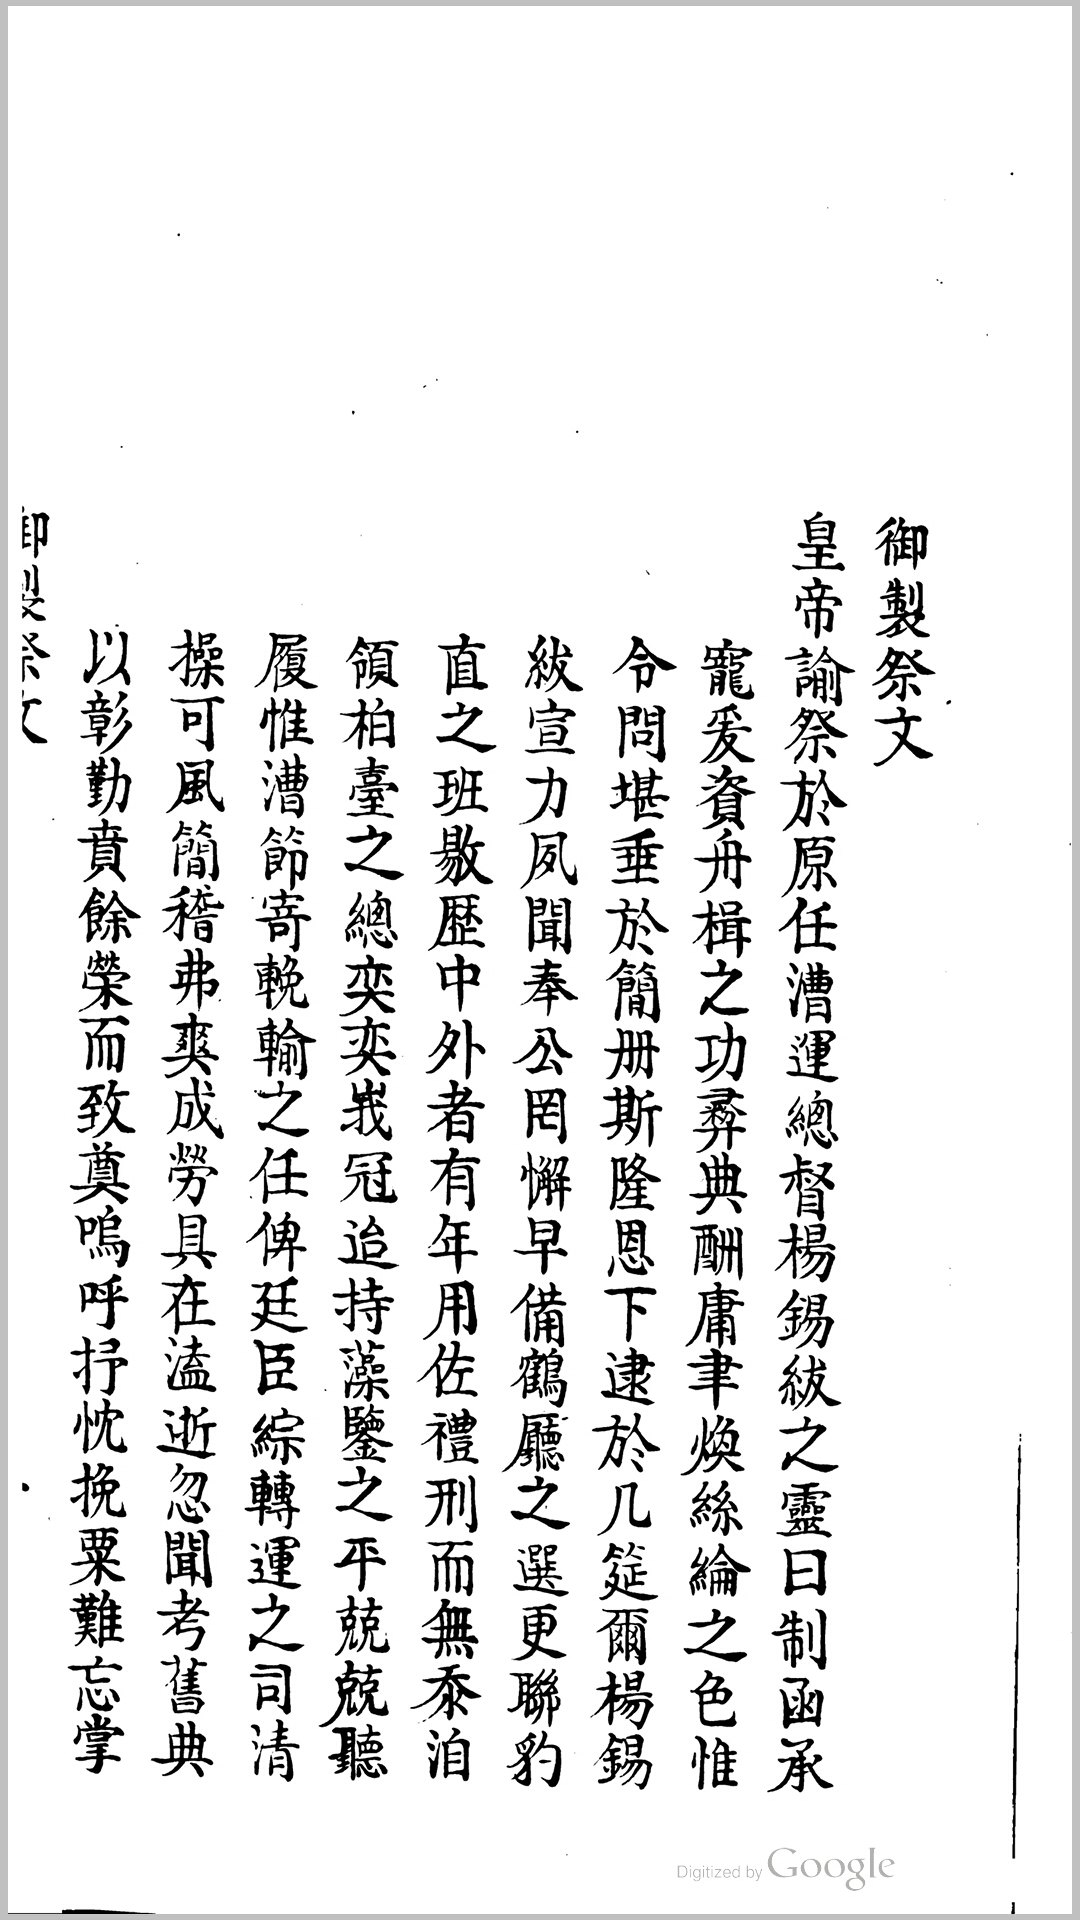 御製祭文
皇帝諭祭於原任漕運總督楊錫紱之靈曰制函承
寵爰資舟楫之功彞典酬庸聿煥絲綸之色惟
令問堪垂於簡册斯隆恩下逮於几筵爾楊錫
紱宣力夙聞奉公罔懈早備鶴廳之選更聯豹
直之班敭歷中外者有年用佐禮刑而無忝洎
領柏臺之總奕奕峩冠迨持藻鑒之平兢兢聽
履惟漕節寄輓輸之任俾廷臣綜轉運之司清
操可風簡稽弗爽成勞具在溘逝忽聞考舊典
以彰勤賁餘榮而致奠嗚呼抒忱挽粟難忘掌
御製祭文
Digitized by Google